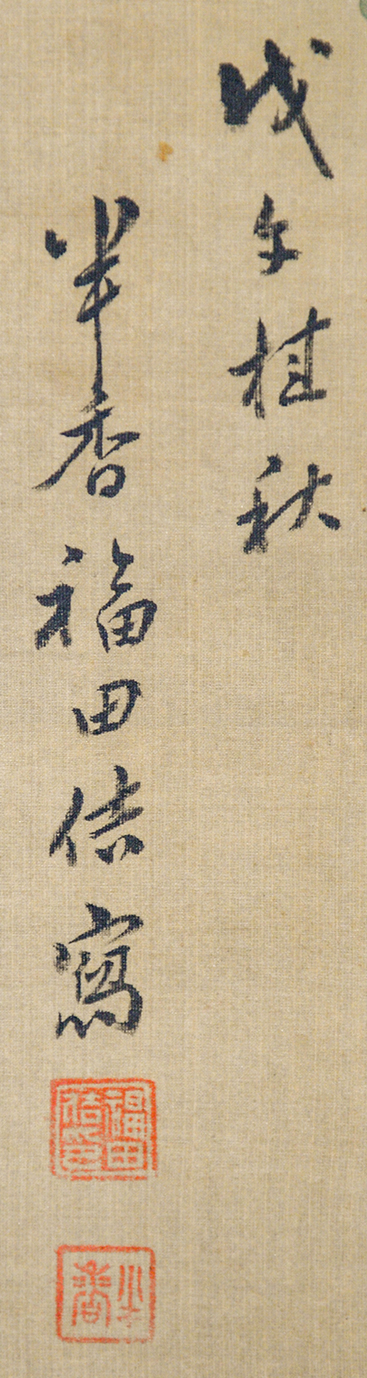 戊午桂秋
半香福田佶寫
福田佶印
半香